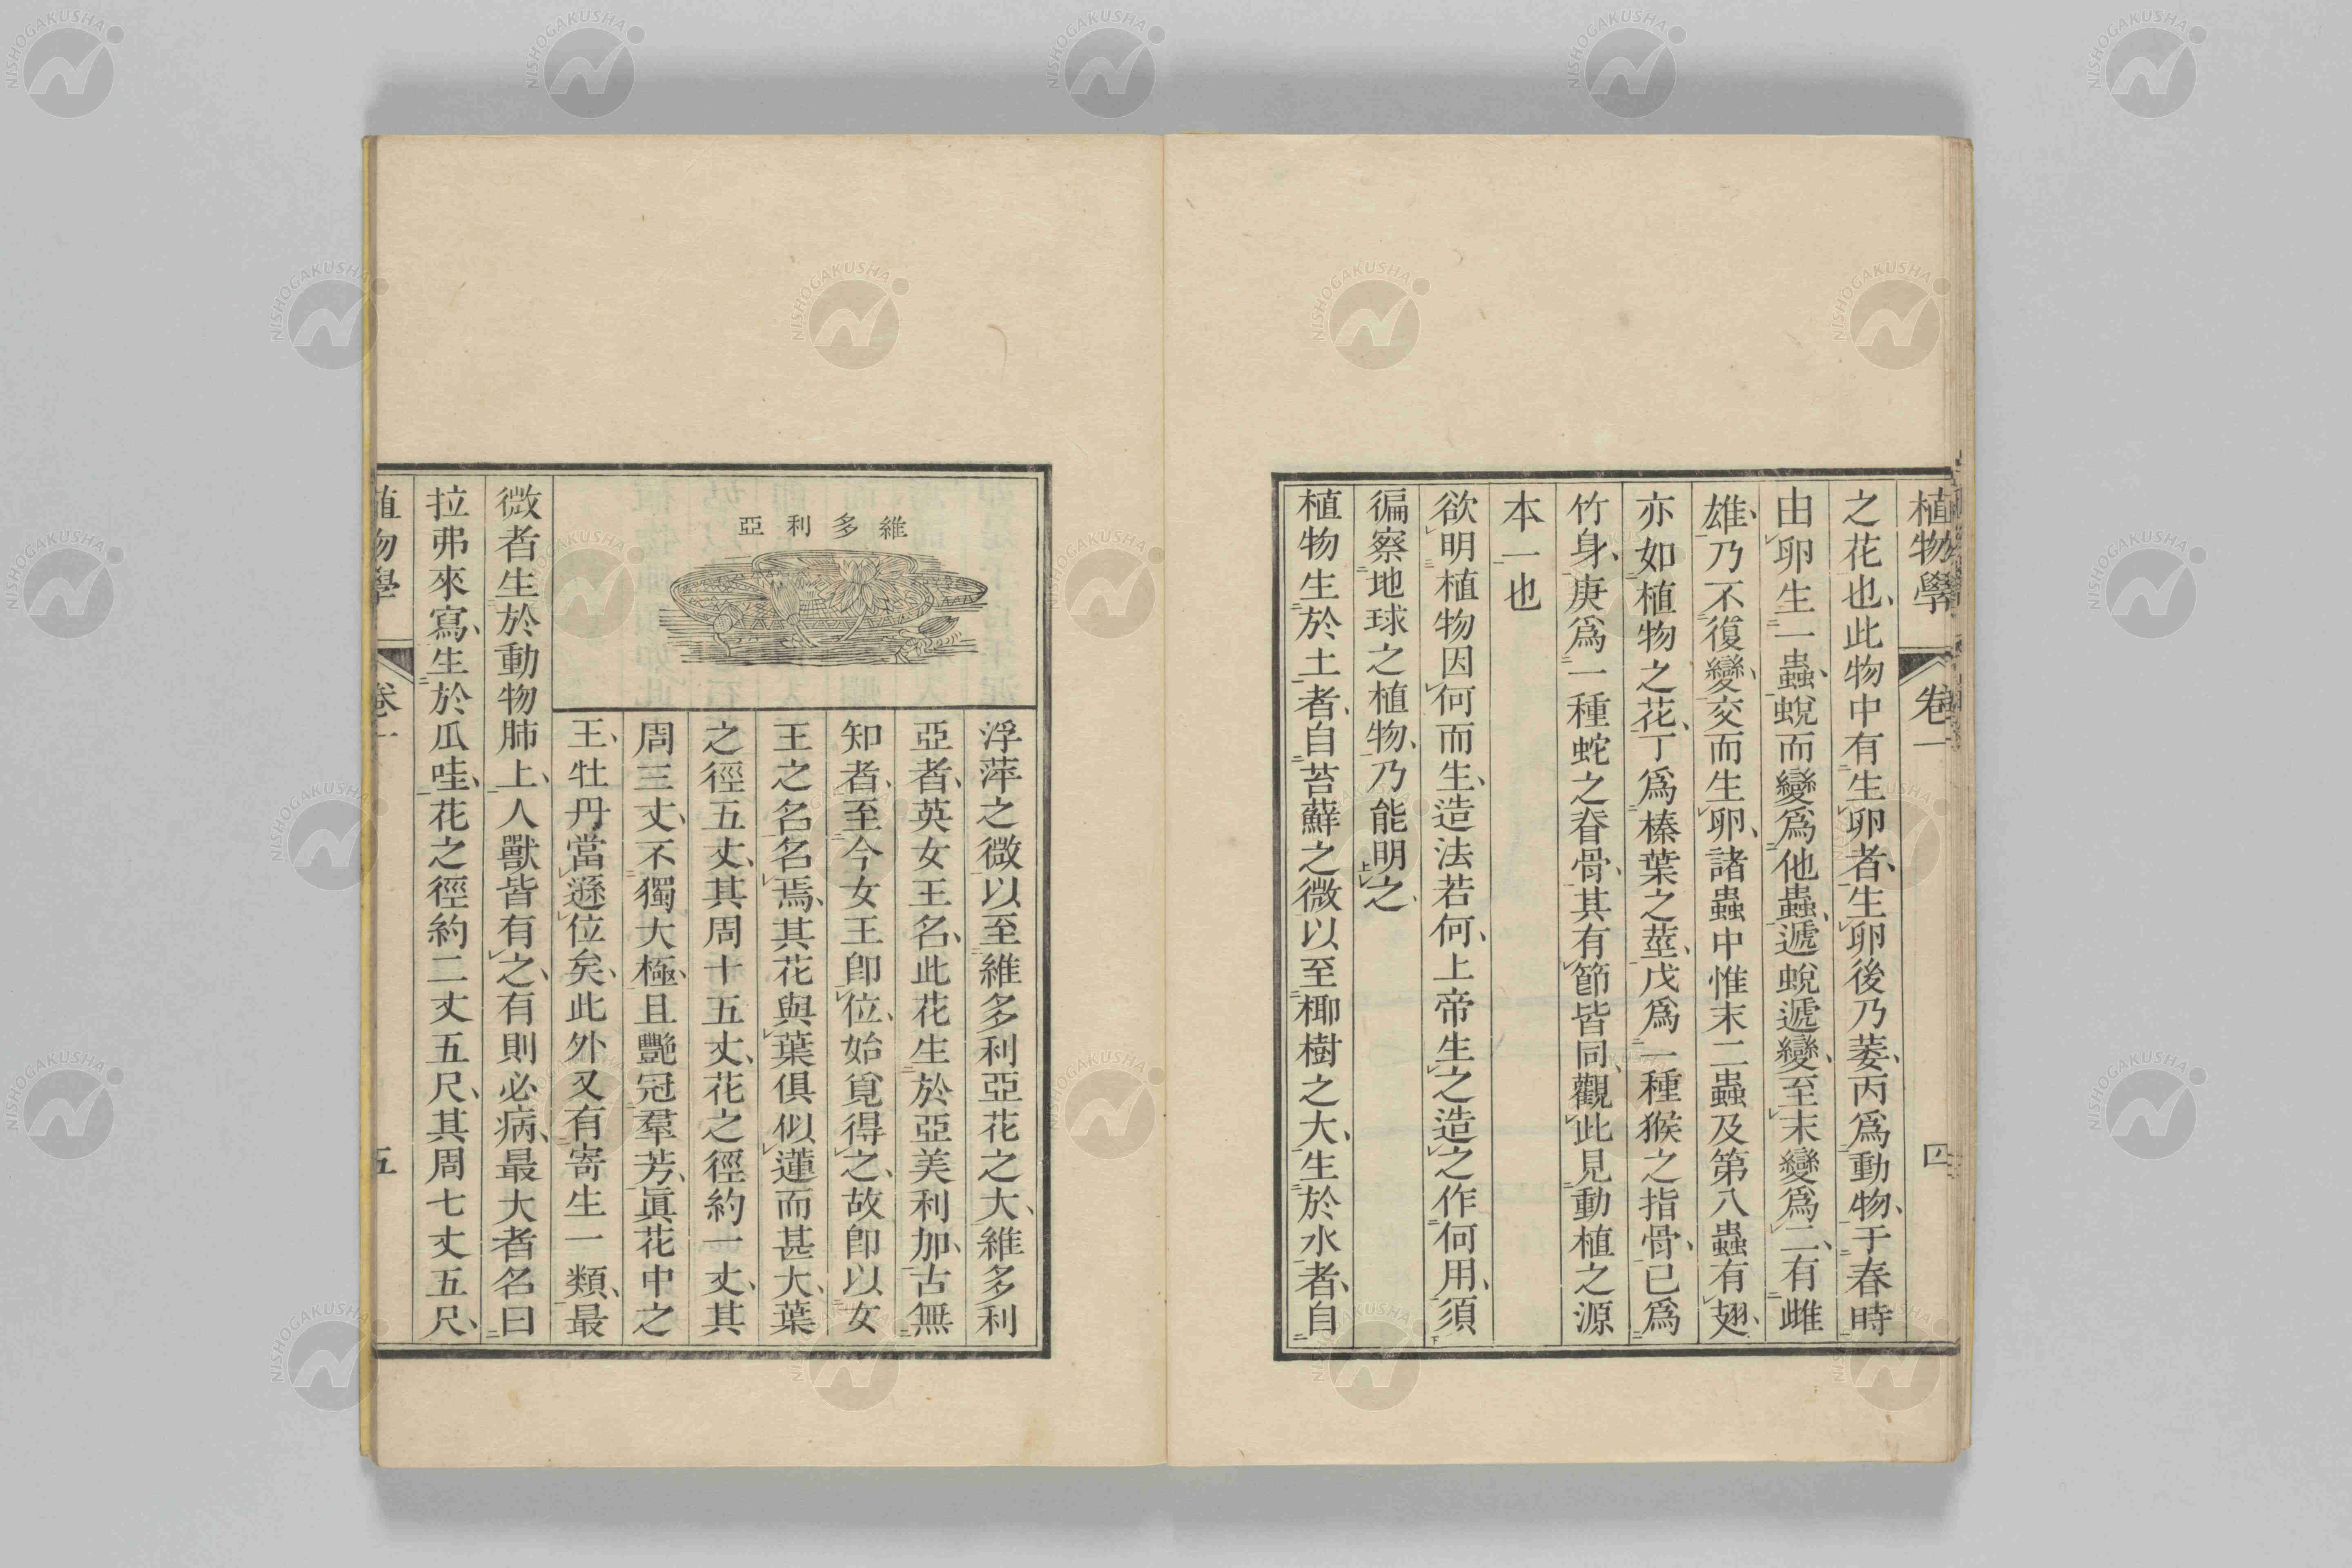 植物學 卷一 四
之花也、此物中有生卵者、生卵後乃萎、丙爲動物、于春時
由卵生一蟲、蛻而變爲他蟲、遞蛻遞變、至末變爲二、有雌
雄、乃不復變、交而生卵、諸蟲中惟末二蟲及第八蟲有翅、
亦如植物之花、丁爲榛葉之莖、戊爲一種猴之指骨、已爲
竹身、庚爲一種蛇之脊骨、其有節皆同、觀此見動植之源
本一也
欲明植物因何而生、造法若何、上帝生之造之作何用、須
徧察地球之植物、乃能明之
植物生於土者、自苔蘚之微以至椰樹之大、生於水者、自
維多利亞
浮萍之微以至維多利亞花之大、維多利
亞者、英女王名、此花生於亞美利加、古無
知者、至今女王卽位、始覓得之、故卽以女
王之名名焉、其花與葉俱似蓮而甚大、葉
之徑五丈、其周十五丈、花之徑約一丈、其
周三丈、不獨大極、且艷冠羣芳、眞花中之
王、牡丹當遜位矣、此外又有寄生一類、最
微者生於動物肺上、人獸皆有之、有則必病、最大者名曰
拉弗來寫、生於瓜哇、花之徑約二丈五尺、其周七丈五尺、
植物學 卷一 五
NISHOGAKUSHA